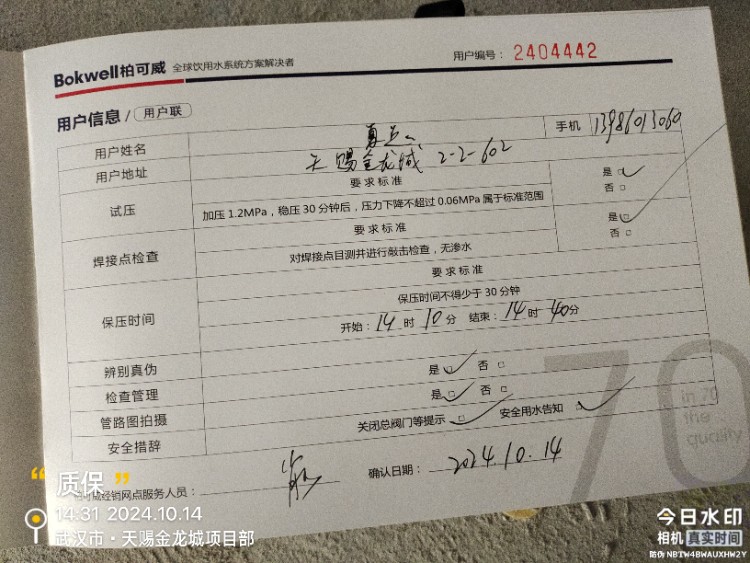 Bokwell柏可威 全球饮用水系统方案解决者
用户编号: 2404442
用户信息 / 用户联
用户姓名
手机 13986013060
用户地址 天赐金龙城 2-2-602
试压
要求标准
加压1.2MPa，稳压30分钟后，压力下降不超过0.06MPa属于标准范围
是
否
焊接点检查
要求标准
对焊接点目测并进行敲击检查，无渗水
是
否
保压时间
要求标准
保压时间不得少于30分钟
开始: 14时10分 结束: 14时40分
辨别真伪 是 否
检查管理 是 否
管路图拍摄
安全措辞
关闭总阀门等提示 安全用水告知
经销网点服务人员:
确认日期: 2024.10.14
70
in 70
the
quality
“质保”
14:31 2024.10.14
武汉市·天赐金龙城项目部
今日水印
相机 真实时间
防伪 NBTW4BWAUXHW2Y